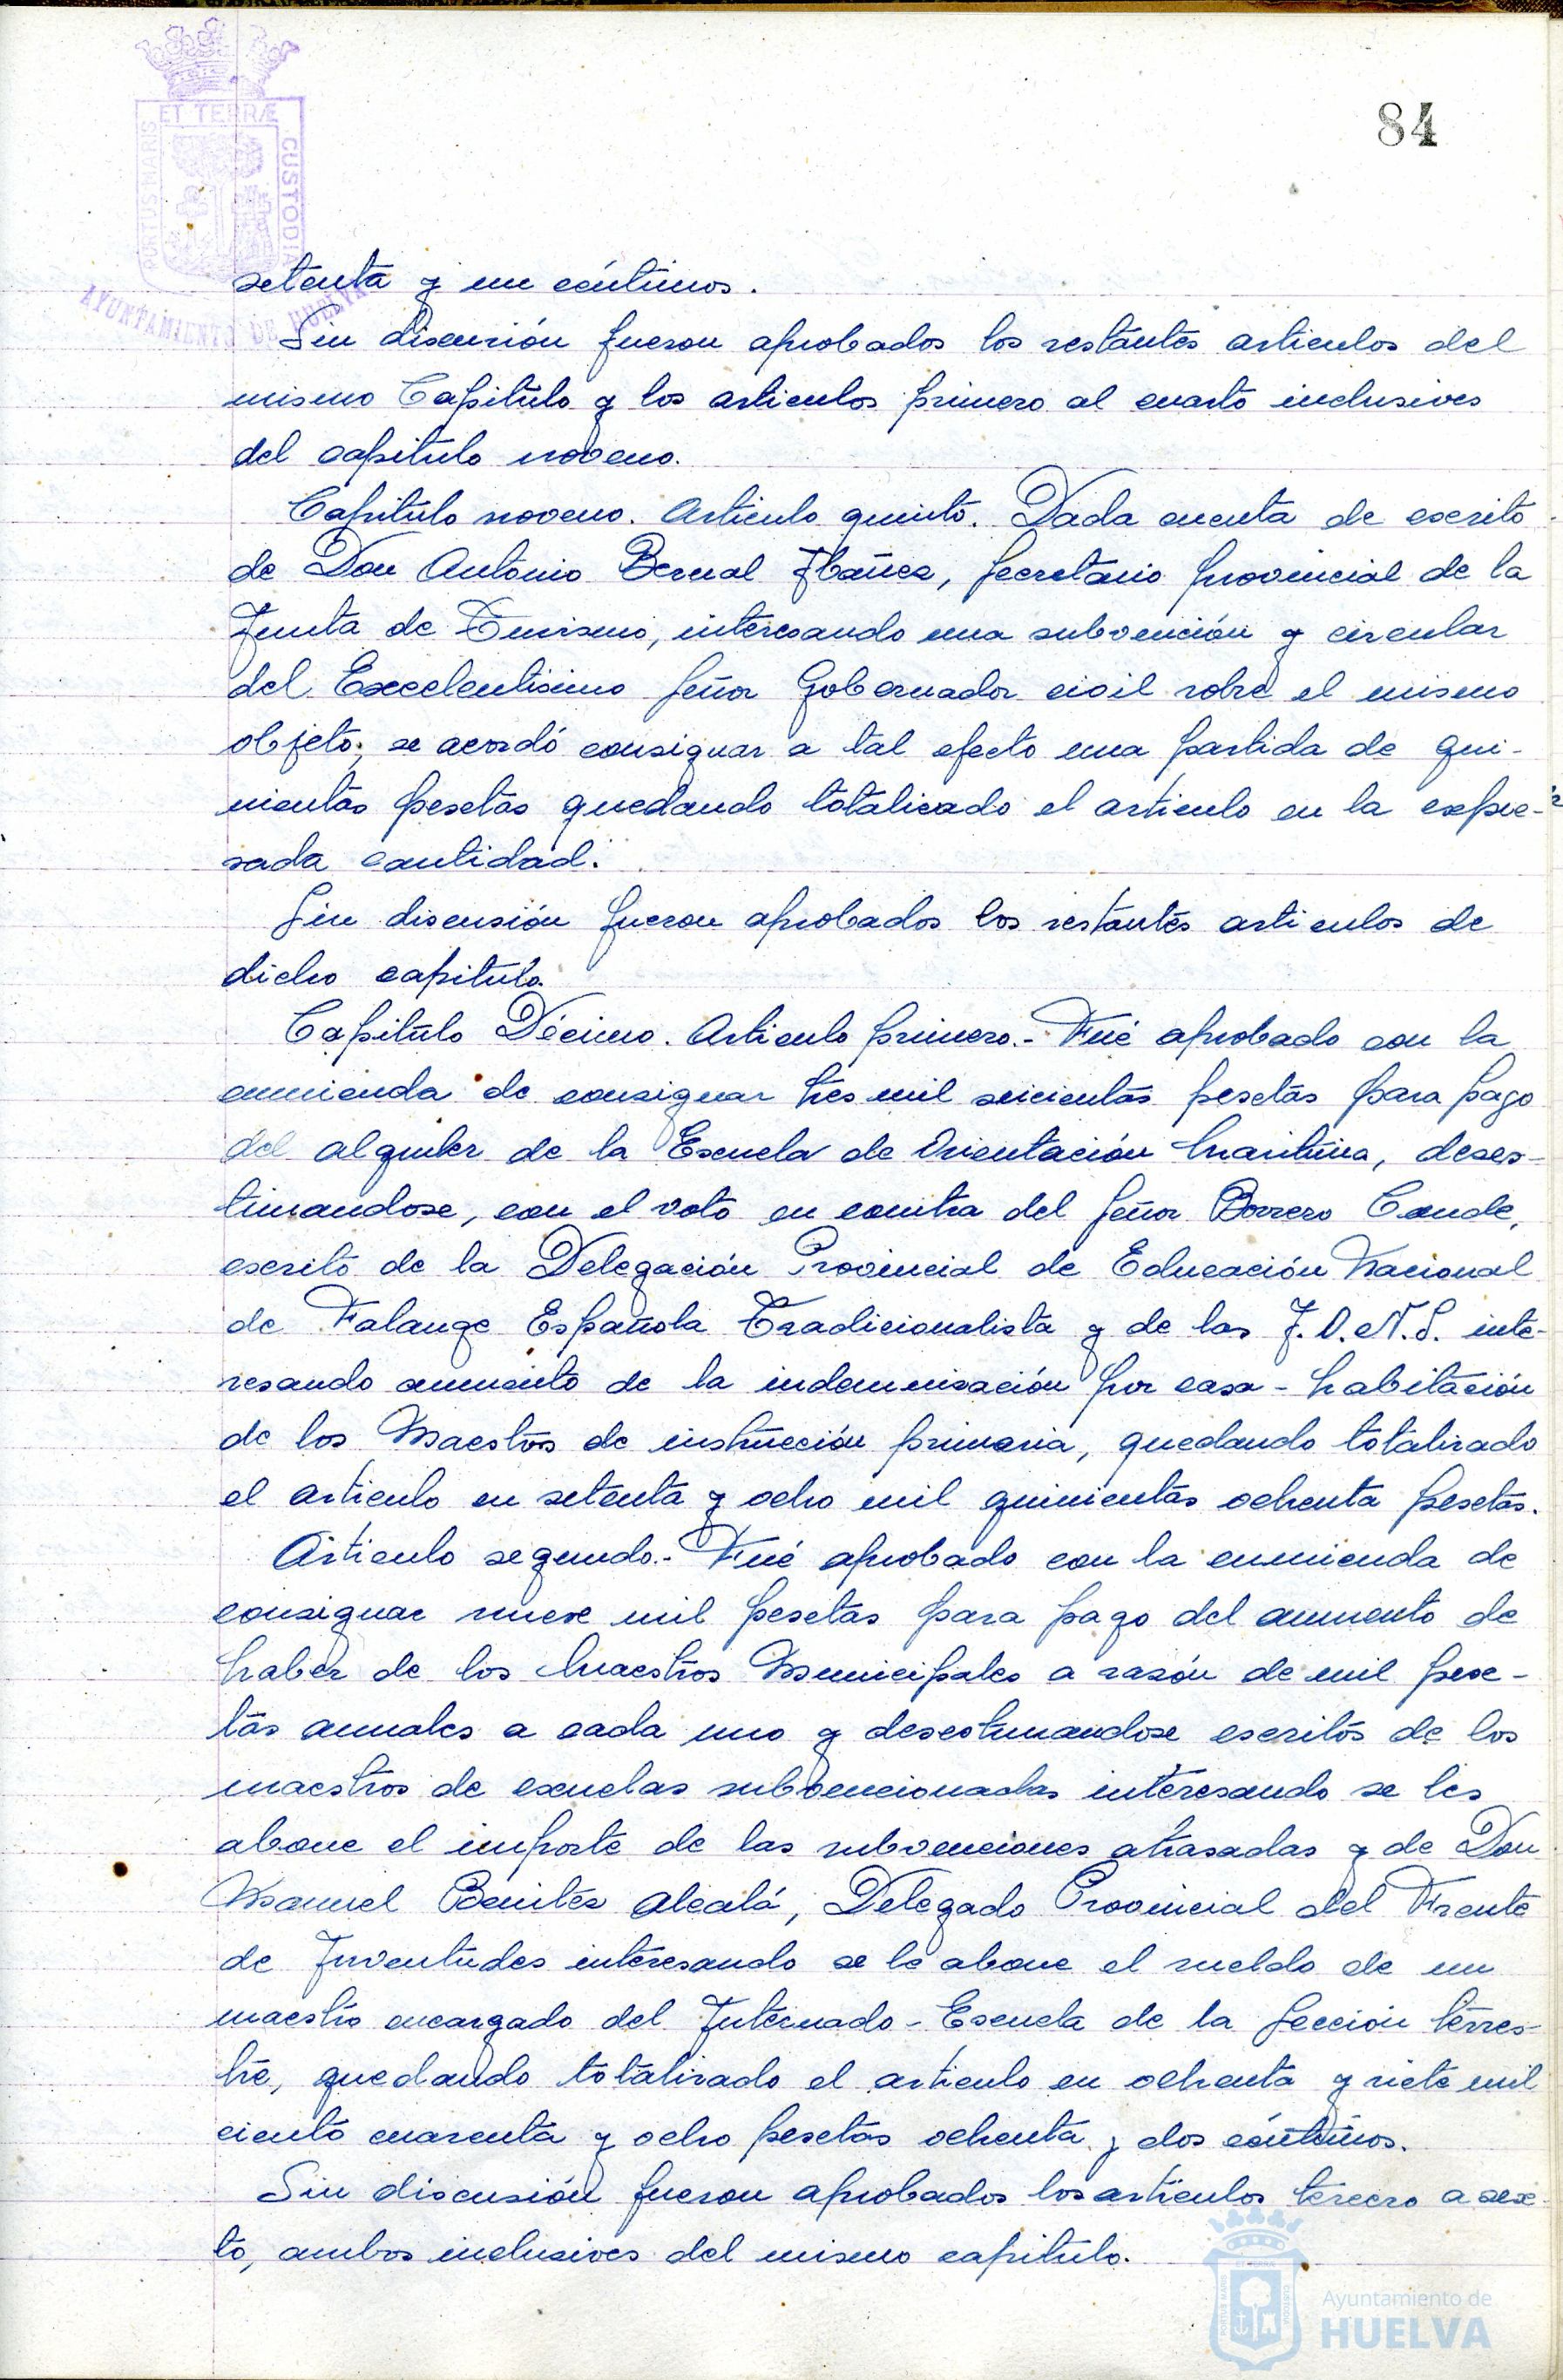 84
ET TERRÆ
PORTUS MARIS
CUSTODIA
AYUNTAMIENTO DE HUELVA
setenta y un céntimos.
Sin discusión fueron aprobados los restantes articulos del
mismo Capítulo y los articulos primero al cuarto inclusives
del capitulo noveno.
Capítulo noveno. Articulo quinto. Dada cuenta de escrito
de Don Antonio Bernal Ibañez, Secretario provincial de la
Junta de Turismo, interesando una subvención y circular
del Excelentisimo Señor Gobernador civil sobre el mismo
objeto; se acordó consignar a tal efecto una partida de qui-
nientas pesetas quedando totalizado el articulo en la expre-
sada cantidad.
Sin discusión fueron aprobados los restantes articulos de
dicho capitulo.
Capítulo Décimo. Articulo primero.- Fué aprobado con la
enmienda de consignar tres mil seicientas pesetas para pago
del alquiler de la Escuela de Orientación Maritima, deses-
timandose, con el voto en contra del Señor Borrero Conde,
escrito de la Delegación Provincial de Educación Nacional
de Falange Española Tradicionalista y de las J.O.N.S. inte-
resando aumento de la indemnización por casa-habitación
de los Maestros de instrucción primaria, quedando totalizado
el articulo en setenta y ocho mil quinientas ochenta pesetas.
Articulo segundo.- Fué aprobado con la enmienda de
consignar nueve mil pesetas para pago del aumento de
haber de los Maestros Municipales a razón de mil pese-
tas anuales a cada uno y desestimandose escritos de los
maestros de escuelas subvencionadas interesando se les
abone el importe de las subvenciones atrasadas y de Don
Manuel Benitez Alcalá, Delegado Provincial del Frente
de Juventudes interesando se le abone el sueldo de un
maestro encargado del Internado-Escuela de la Sección terres-
tre, quedando totalizado el articulo en ochenta y siete mil
ciento cuarenta y ocho pesetas ochenta y dos céntimos.
Sin discusión fueron aprobados los articulos tercero a sex-
to, ambos inclusives del mismo capitulo.
Ayuntamiento de
HUELVA